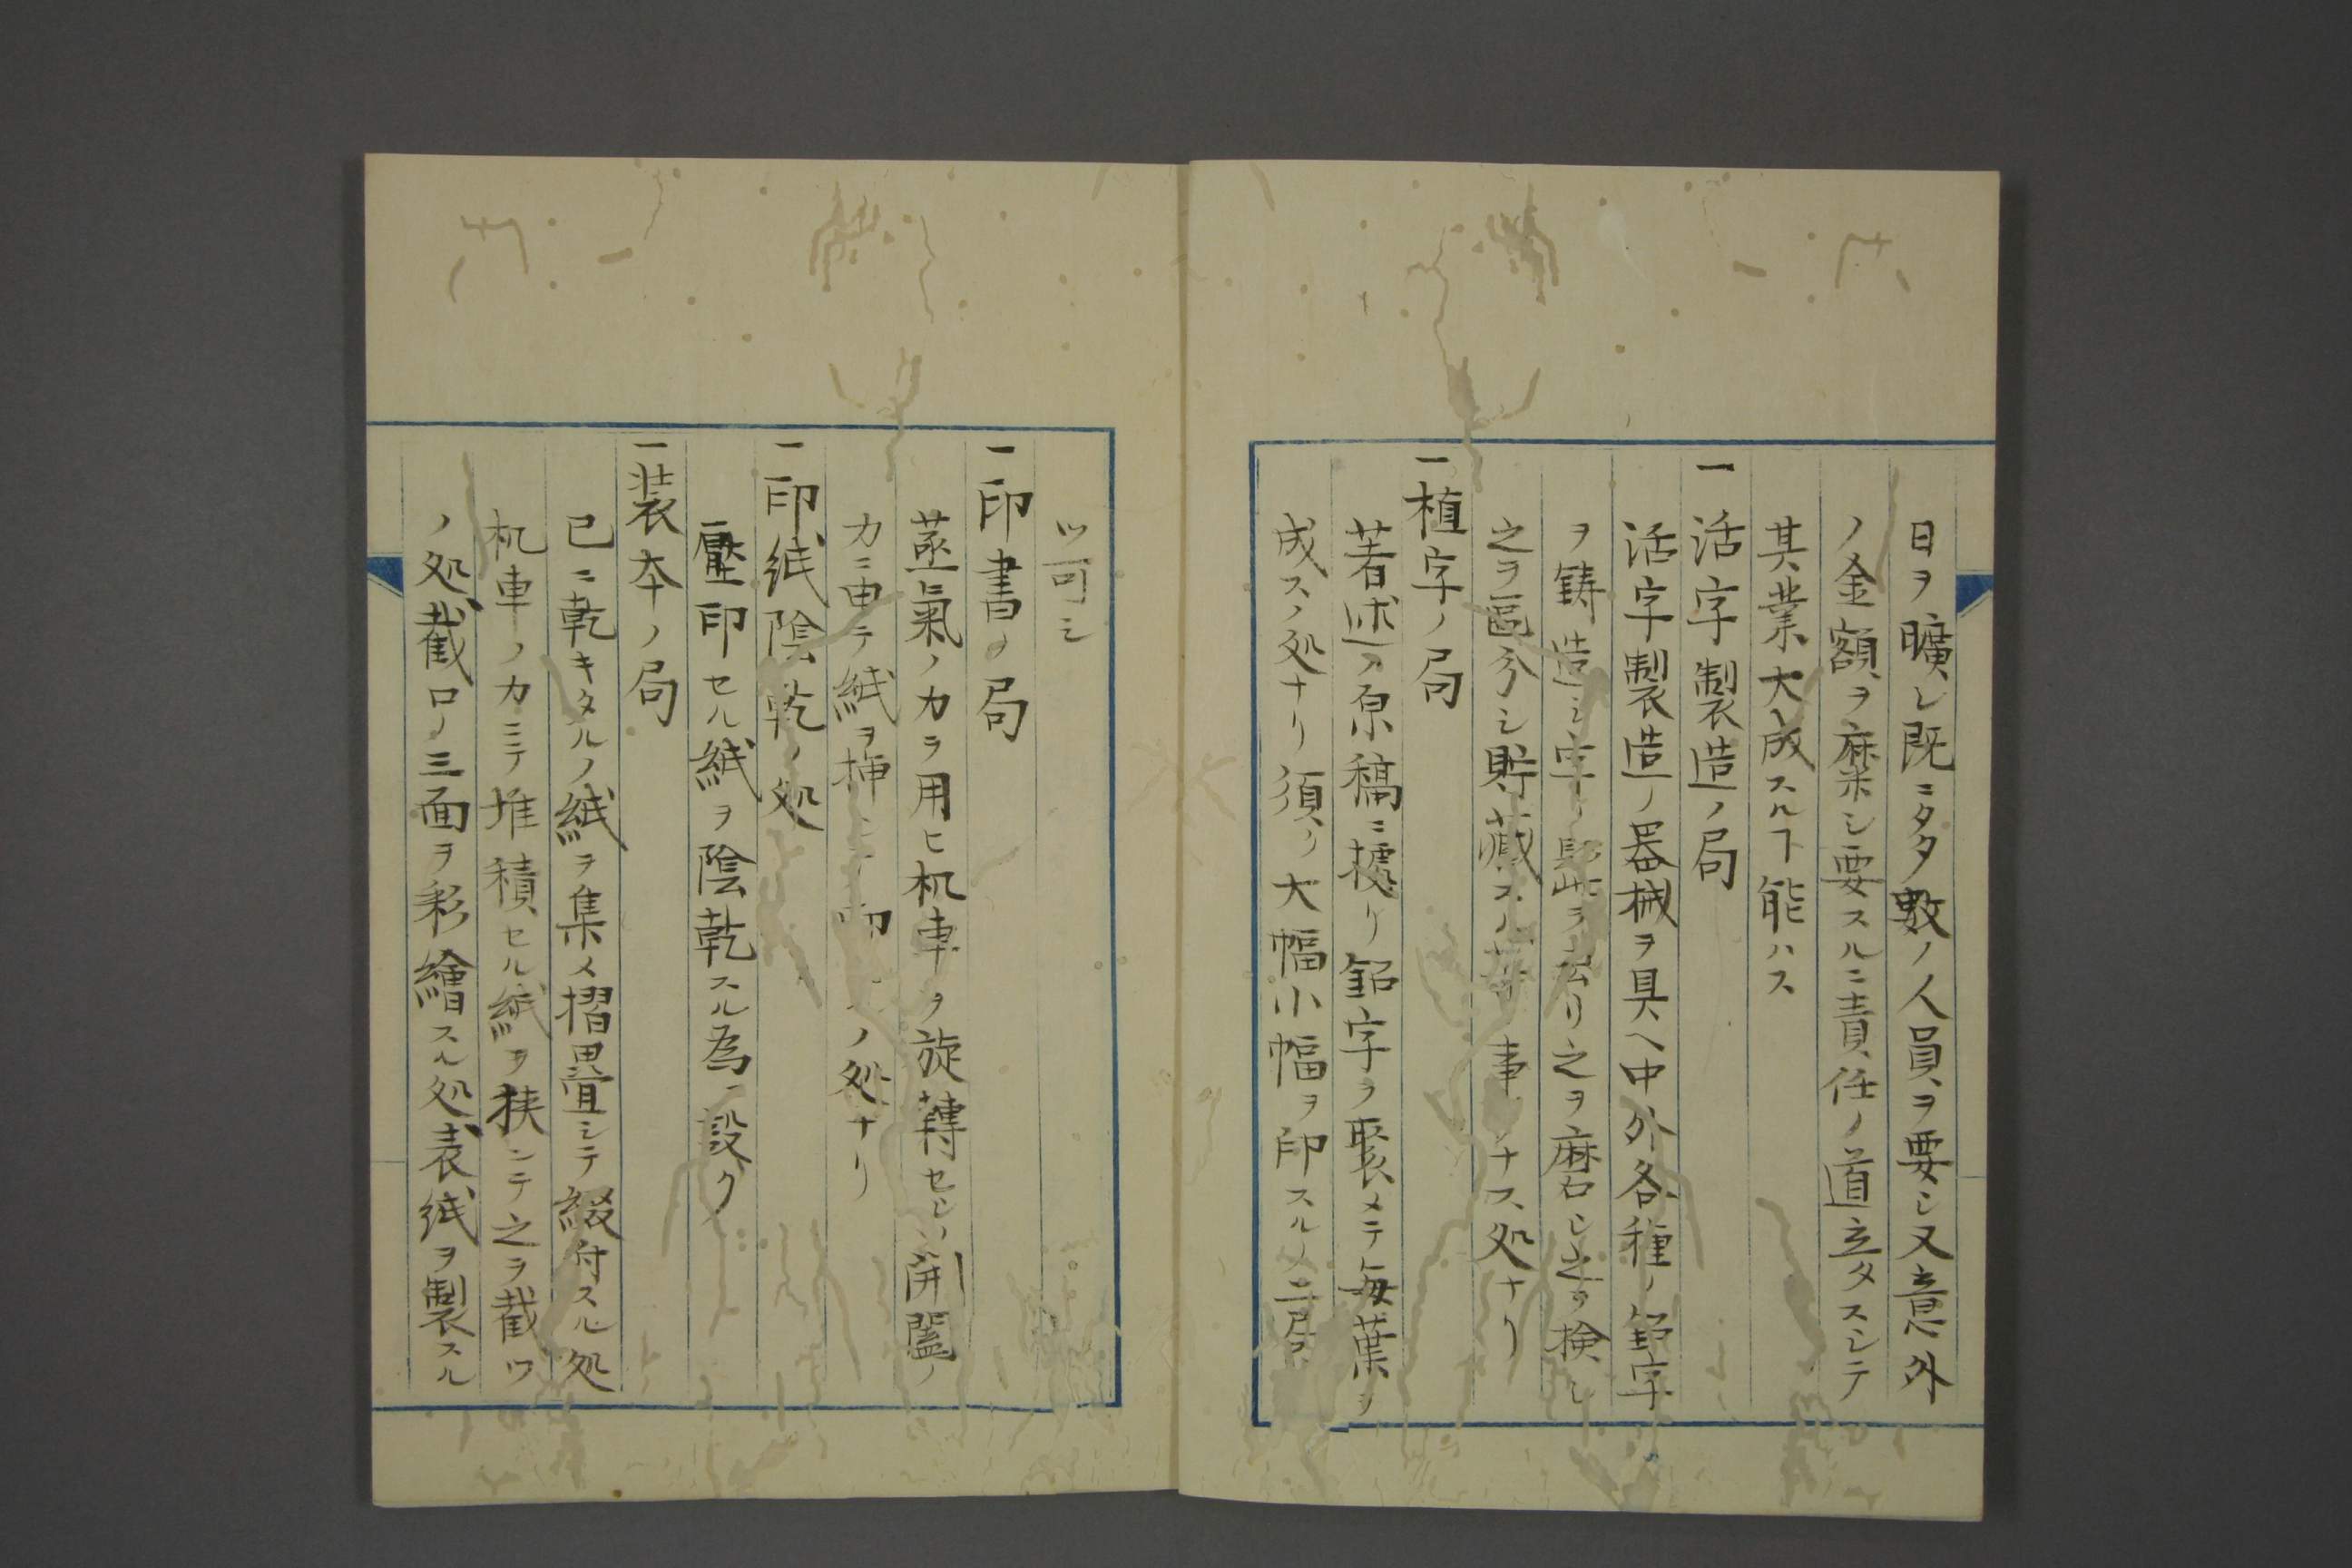 日ヲ曠シ既ニタタ敷ノ人員ヲ要シ又意外
ノ金額ヲ麋シ要スルニ責任ノ道立タスシテ
其業大成スルヿ能ハス
一活字製造ノ局
活字製造ノ器械ヲ具ヘ中外各種ノ鉛字
ヲ鋳造シ字ノ ヲ去リ之ヲ磨シ之ヲ検シ
之ヲ區分シ貯蔵スル等ノ事ヲナス処ナリ
一植字ノ局
著述ノ原稿ニ據リ鉛字ヲ聚メテ毎葉ヲ
成スノ処ナリ須ク大幅小幅ヲ印スルノ二局ヲ
ツ可シ
一印書ノ局
蒸氣ノカヲ用ヒ机車ヲ旋轉セシ開闔ノ
カニ由テ紙ヲ挿 印 ノ処ナリ
一印紙陰乾ノ処
壓印セル紙ヲ陰乾スル為ニ設ク
一装本ノ局
已ニ乾キタルノ紙ヲ集メ摺疊シテ綴付スル処
机車ノカニテ堆積セル紙ヲ狭ンテ之ヲ截ツ
ノ処截口ノ三面ヲ彩繪スル処表紙ヲ製スル